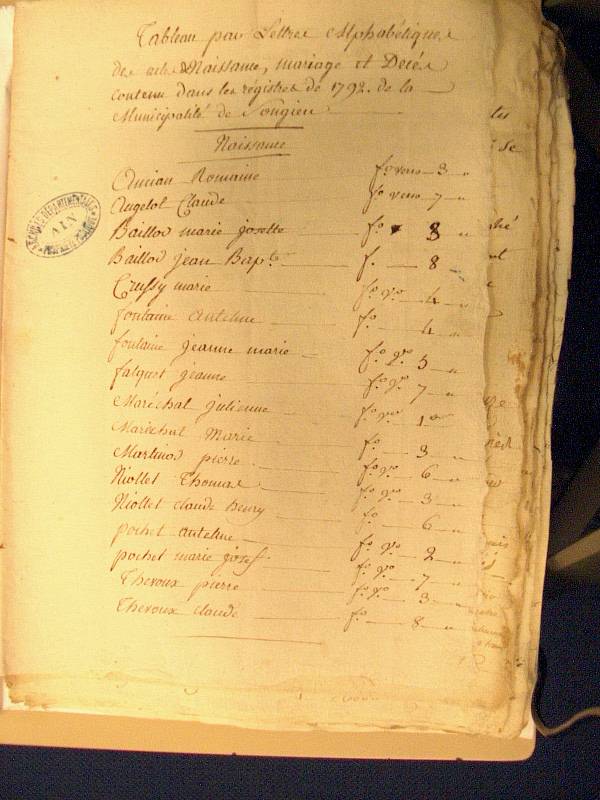 Tableau par Lettre Alphabétique
des actes Naissance, mariage et Decés
contenu dans les registres de 1792. de la
Municipalité de Songieu
Naissance
Romaine fo. verso 3 "
Angelot Claude fo. verso 7 "
Baillod marie josette fo. 8 "
Baillod jean Bapte. f. 8
Trussy marie fo. vo. 4 "
fontaine anteline fo. 4 "
fontaine jeanne marie fo. vo. 5 "
falquet jeanne fo. vo. 7 "
Maréchal julienne fo. vo. 1 "
Maréchal Marie fo. 3 "
Martinod pierre fo. vo. 6 "
Niollet Thomas fo. vo. 3 "
Niollet claude henry fo. 6 "
pochet anteline fo. vo. 2 "
pochet marie josef. fo. vo. 7 "
Thevoux pierre fo. vo. 3 "
Thevoux claude fo. 8 "
ARCHIVES DÉPARTEMENTALES
AIN